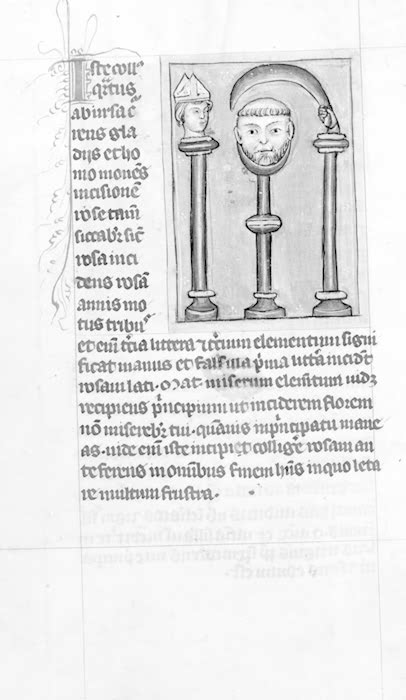 Iste coll'
qrtus
ab ursa c̄
iens gla
diis et ho
mo monēs
incisionē
rose tam̄
siccabr̄ sic̄
rosa inci
dens rosā
annis mo
tus tribus
et eius t̄cia littera ⁊ t̄cium elementum signi
ficat manus et falsilla p̄ma litt̄a incidēt
rosam lati. Mat. miserum elesitum uidz
recipiens p̄ncipium ut inciderem florem
nō miserebr̄ tui. quāuis in p̄ncipatu mane
as. uide eius iste incipiet colligē rosam an
te ferens in omnibus finem hn̄s in quo leta
re multum frustra.